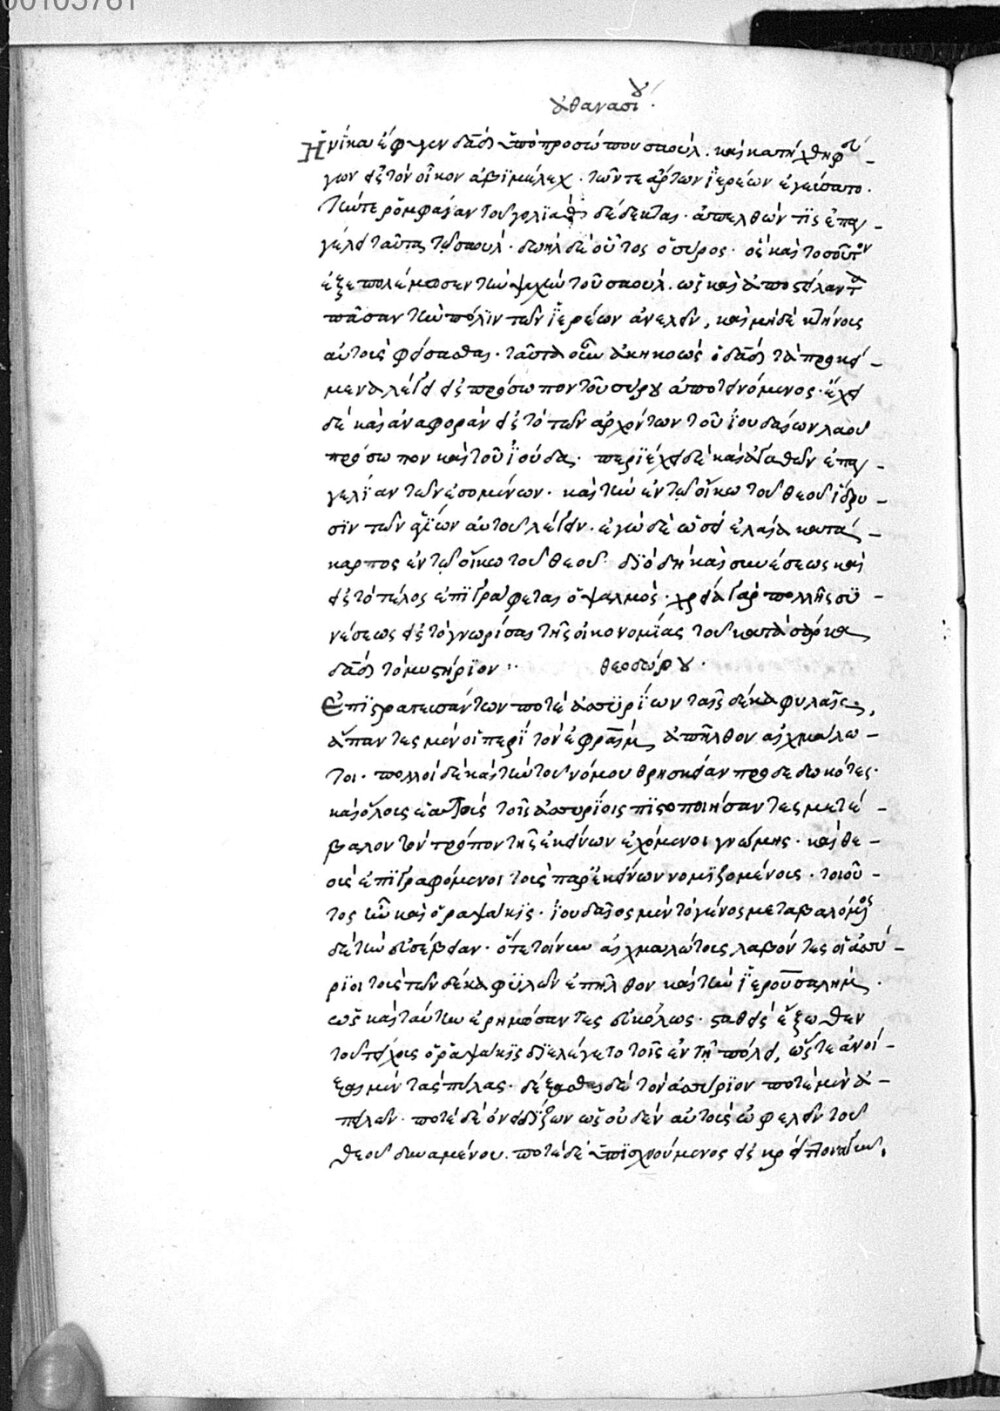 00105781
ἀθανασίου.
Ἡνίκα ἔφυγεν δαδ ἀπὸ προσώπου σαούλ. καὶ κατῆλθε φεύ-
γων εἰς τὸν οἶκον ἀβιμέλεχ. τῶν τε ἄρτων ἱερέων ἐγεύσατο.
τήν τε ῥομφαίαν τοῦ γολιὰθ δέδεκται. ἀπελθών τις ἐπαγ-
γέλει ταῦτα τῷ σαούλ. δωὴκ δὲ οὗτος ὁ σύρος. ὃς καὶ τοσοῦτον
ἐξεπολέμωσεν τὴν ψυχὴν τοῦ σαούλ. ὡς καὶ ἀποστείλαντα
πᾶσαν τὴν πόλιν τῶν ἱερέων ἀνελεῖν, καὶ μηδὲ κτήνοις
αὐτοῖς φείσασθαι. ταῦτα οὖν ἀκηκοὼς ὁ δαδ τὰ προκεί-
μενα λέγει εἰς πρόσωπον τοῦ σύρου ἀποτεινόμενος. ἔχει
δὲ καὶ ἀναφορὰν εἰς τὸ τῶν ἀρχόντων τοῦ ἰουδαίων λαοῦ
πρόσωπον καὶ τοῦ ἰούδα. περιέχει δὲ καὶ ἀγαθῶν ἐπαγ-
γελίαν τῶν ἐσομένων. καὶ τὴν ἐν τῷ οἴκω τοῦ θεοῦ ἵδρυ-
σιν τῶν ἁγίων αὐτοῦ λέγειν. ἐγὼ δὲ ὡσεὶ ἐλαία κατά-
καρπος ἐν τῷ οἴκω τοῦ θεοῦ. διὸ δὴ καὶ συνέσεως καὶ
εἰς τὸ τέλος ἐπιγράφεται ὁ ψαλμός. χρεία γὰρ πολλῆς συ-
νέσεως εἰς τὸ γνωρίσαι τῆς οἰκονομίας τοῦ κατὰ σάρκα
δαδ τὸ μυστήριον.. θεοδώρου.
Ἐπιστρατευσάντων ποτὲ ἀσσυρίων ταῖς δέκα φυλαῖς,
ἅπαντες μὲν οἱ περὶ τὸν ἐφραῒμ ἀπῆλθον αἰχμάλω-
τοι. πολλοὶ δὲ καὶ τὴν τοῦ νόμου θρησκείαν προδεδωκότες.
καὶ ὅλοις ἑαυτοὺς τοῖς ἀσσυρίοις πιστοποιήσαντες μετέ-
βαλον τὸν τρόπον τῆς ἐκείνων ἐχόμενοι γνώμης. καὶ θε-
οῖς ἐπιγραφόμενοι τοῖς παρ' ἐκείνων νομιζομένοις. τοιοῦ-
τος ἦν καὶ ὁ ραψάκης. ἰουδαῖος μὲν τὸ γένος μεταβαλόμενος
δὲ τὴν εὐσέβειαν. ὅτε τοίνυν αἰχμαλώτοις λαβόντες οἱ ἀσσύ-
ριοι τοὺς τῶν δέκα φυλῶν ἐπῆλθον καὶ τὴν ἱερουσαλήμ.
ὡς καὶ ταύτην ἐρημώσαντες εὐκόλως. σταθεὶς ἔξωθεν
τοῦ τείχους ὁ ραψάκης διελέγετο τοῖς ἐν τῇ πόλει, ὥστε ἀνοί-
ξαι μὲν τὰς πύλας. δέξασθαι δὲ τὸν ἀσσύριον ποτὲ μὲν ἀ-
πειλῶν. ποτὲ δὲ ὀνειδίζων ὡς οὐδὲν αὐτοὺς ὠφελεῖν τοῦ
θεοῦ δυναμένου. ποτὲ δὲ ὑπισχνούμενος εἰς